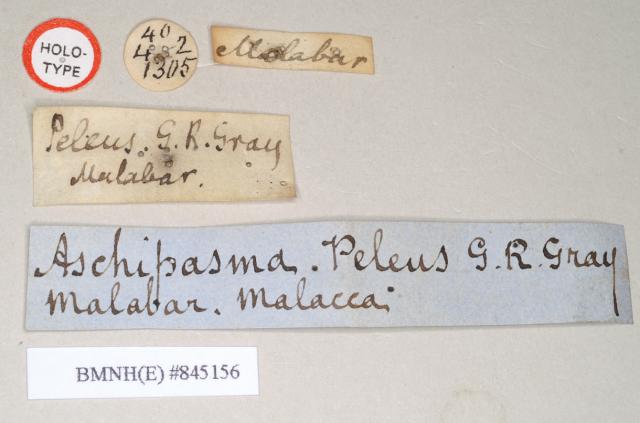 HOLO-
TYPE
40
4 2
1305
Malabar
Peleus. G. R. Gray
Malabar.
Aschipasma. Peleus G. R. Gray
Malabar. Malacca
BMNH(E) #845156